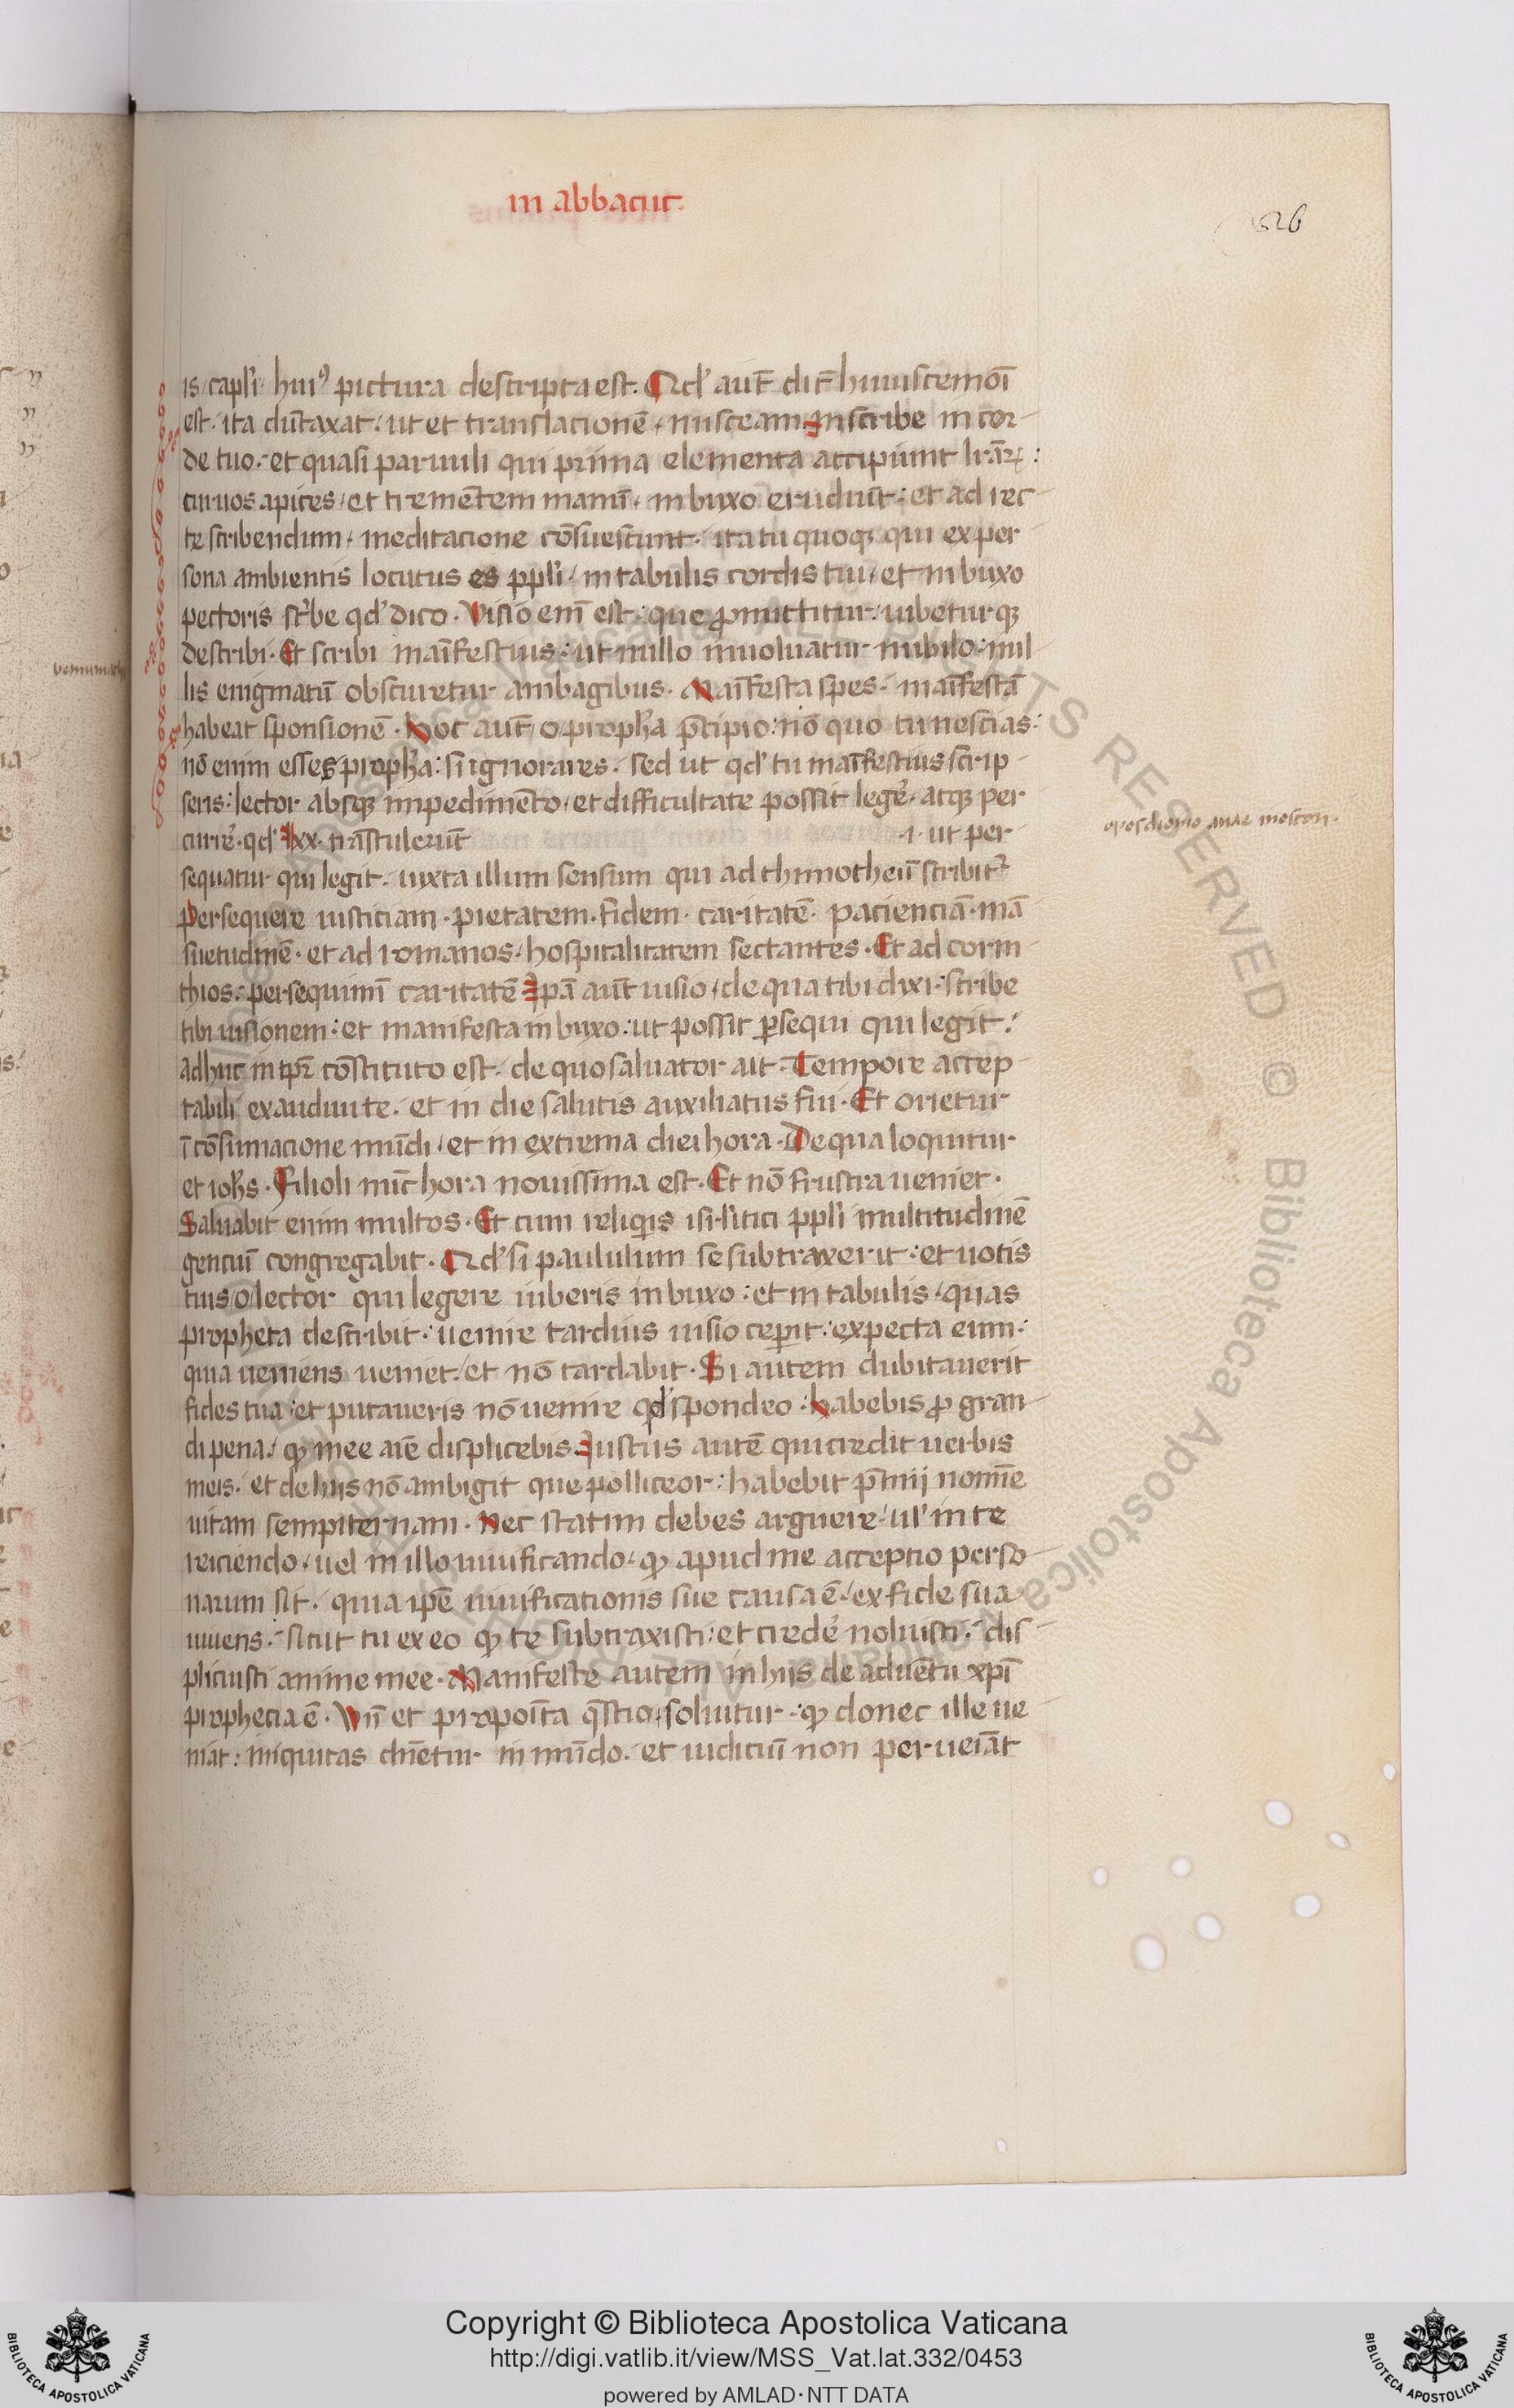 in abbacuc
is capl̃i huiꝰ pictura descripta est. Qd̕ aut̃ dic̃ huiuscemōi
est. ita dũtaxat. ut et translacionē misceam. Inscribe in cor-
de tuo. et quasi paruuli qui prima elementa accipiunt lr̃aꝝ:
curuos apices et trementem manũ in buxo erudiũt: et ad rec-
te scribendum meditacione cōsuescunt. ita tu quoqꝫ qui ex per-
sona ambientis locutus es ppl̃i in tabulis cordis tui et in buxo
pectoris sc̃be qd̕ dico. Visio em̃ est que ꝓmittitur: iubeturqꝫ
describi. Et scribi maĩfestius: ut nullo inuoluatur nubilo: nul-
lis enigmatũ obscuretur ambagibus. Maĩfesta spes. maĩfestã
habeat sponsionē. Hoc aut̃ o propħa p̃cipio: nō quo tu nescias:
nō enim esses propħa: si ignorares. sed ut qd̕ tu maĩfestius scrip-
seris: lector absqꝫ impedimēto et difficultate possit leger̃ atqꝫ per-
curr̃e. qd̕ lxx. trãstulerũt .i. ut per-
sequatur qui legit. iuxta illum sensum qui ad thimotheũ scribitur
Persequere iusticiam. pietatem. fidem. caritatē. pacienciã. mã-
suetudinē. et ad romanos. hospitalitatem sectantes. Et ad corin-
thios. persequimĩ caritatē Ip̃a aut̃ uisio de qua tibi dixi: scribe
tibi uisionem: et manifesta in buxo: ut possit ꝑsequi qui legit:
adhuc in tp̃r constituto est. de quo saluator ait. Tempore accep-
tabili exaudiui te. et in die salutis auxiliatus fui. Et orietur
ĩ cōsumacione mũdi et in extrema diei hora. De qua loquitur
et ioħs. Filioli nũc hora nouissima est. Et nō frustra ueniet.
Saluabit enim multos. Et cum reliquis isrl̃itici ppl̃i multitudinē
genciũ congregabit. Qd̕ si paululum se subtraxerit: et uotis
tuis o lector qui legere iuberis in buxo: et in tabulis quas
propheta describit: uenire tardius uisio ceperit: expecta eum:
quia ueniens ueniet. et nō tardabit. Si autem dubitauerit
fides tua: et putaueris nō uenire qd̕ spondeo: habebis ꝓ gran-
di pena. qꝫ mee aīe displicebis. Justus autē qui credit uerbis
meis. et de hijs nō ambigit que polliceor: habebit p̃mij nomīe
uitam sempiternam. Nec statim debes arguere. ul̕ in te
reiciendo uel in illo uiuificando. qꝫ apud me acceptio perso-
narum sit. quia ip̃e uiuificationis sue causa ē. ex fide sua
uiuens: sicut tu ex eo qꝫ te subtraxisti: et creder̃ noluisti: dis-
plicuisti anime mee. Manifeste autem in hijs de aduentu xp̃i
prophecia ē. Vñ et propoīta q̃stio soluitur qꝫ donec ille ue-
niat: iniquitas dñetur in mũdo. et iudiciũ non perueiãt
oposdioxo anac inoscon.
BIBLIOTECA APOSTOLICA VATICANA
Copyright © Biblioteca Apostolica Vaticana
http://digi.vatlib.it/view/MSS_Vat.lat.332/0453
powered by AMLAD·NTT DATA
BIBLIOTECA APOSTOLICA VATICANA